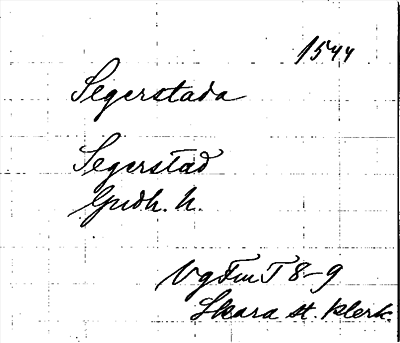 1544
Segerstada
Segerstad
Gudh. h.
VgFmT 8-9
Skara st. klerk.